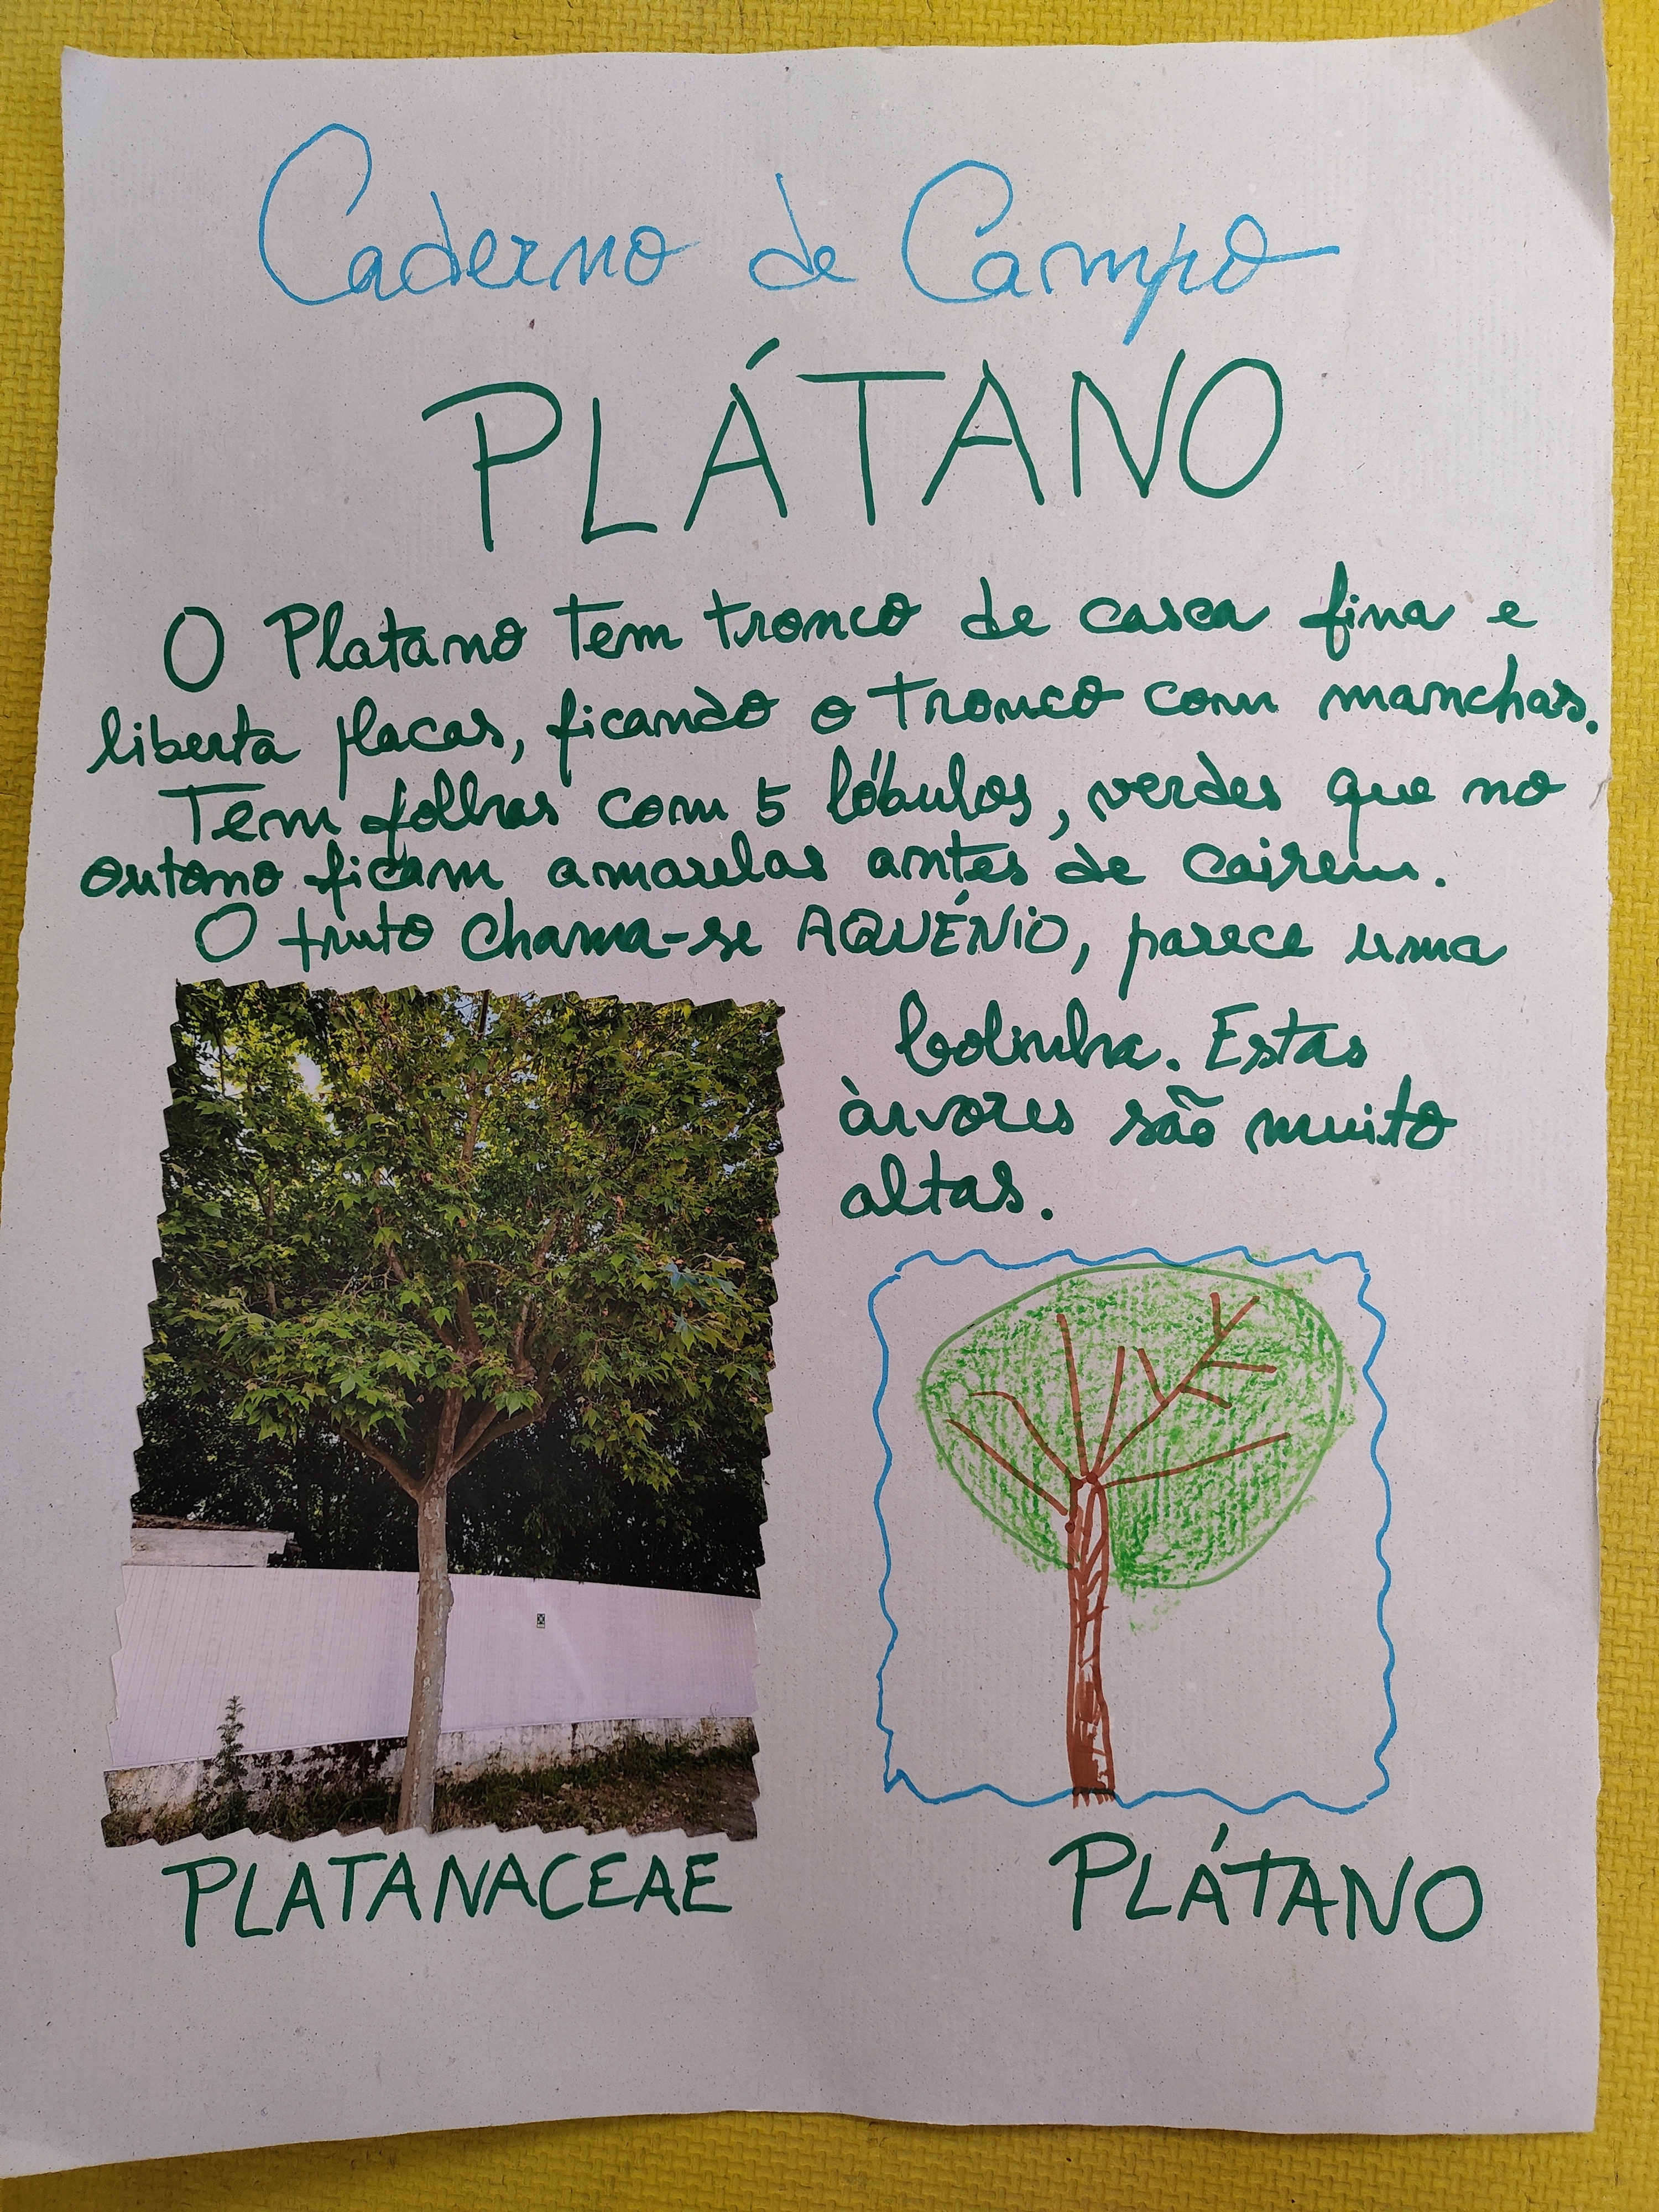 Caderno de Campo
PLÁTANO
O Platano tem tronco de casca fina e
liberta placas, ficando o tronco com manchas.
Tem folhas com 5 lóbulos, verdes que no
outono ficam amarelas antes de cairem.
O fruto chama-se AQUÉNIO, parece uma
bolinha. Estas
àrvores são muito
altas.
PLATANACEAE
PLÁTANO